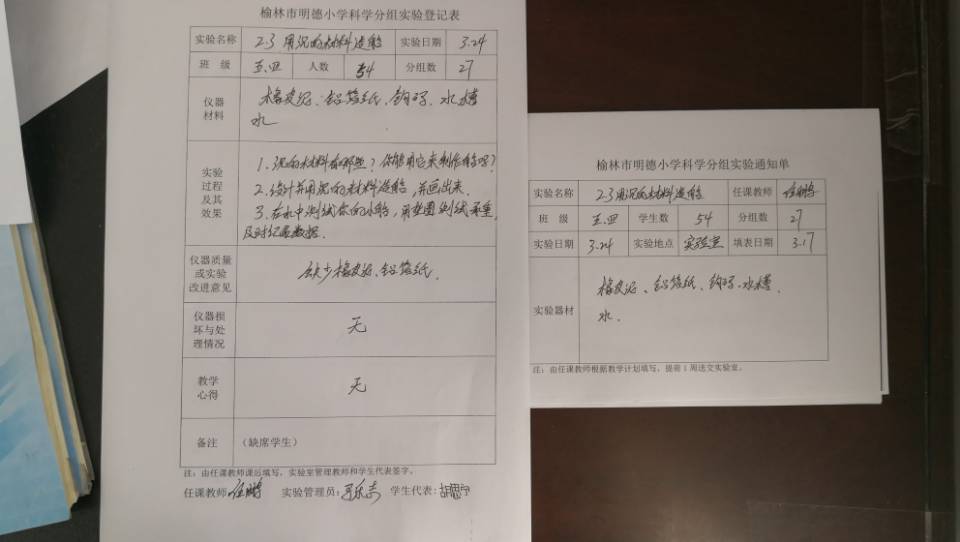 榆林市明德小学科学分组实验登记表
实验名称 2.3 用沉的材料造船 实验日期 3.24
班 级 五.四 人数 54 分组数 27
仪器材料 橡皮泥、铝箔纸、钩码、水槽
水
实验过程及其效果 1、沉的材料有哪些？你能用它来制作船吗？
2、设计并用沉的材料造船,并画出来.
3、在水中测试你的小船,用垫圈测试承重,
及时纪录数据.
仪器质量或实验改进意见 缺少橡皮泥、铝箔纸.
仪器损坏与处理情况 无
教学心得 无
备注 (缺席学生)
注：由任课教师课后填写，实验室管理教师和学生代表签字。
任课教师: 实验管理员: 学生代表:
榆林市明德小学科学分组实验通知单
实验名称 2.3用沉的材料造船 任课教师
班 级 五.四 学生数 54 分组数 27
实验日期 3.24 实验地点 实验室 填表日期 3.17
实验器材 橡皮泥、铝箔纸、钩码、水槽、
水.
注：由任课教师根据教学计划填写，提前1周送交实验室。